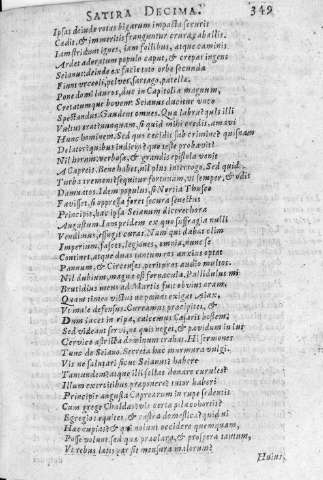 SATIRA DECIMA. 349
Ipsas deinde rotas bigarum impacta securis
Cædit, & immeritis franguntur crura caballis.
Iam stridunt ignes, iam follibus, atque caminis
Ardet adoratum populo caput, & crepat ingens
Seianus: deinde ex facie toto orbe secunda
Fiunt urceoli, pelves, sartago, patellæ.
Pone domi lauros, duc in Capitolia magnum,
Cretatumque bovem: Seianus ducitur unco
Spectandus. Gaudent omnes. Quæ labra? quis illi
Vultus erat? nunquam, si quid mihi credis, amavi
Hunc hominem. Sed quo cecidit sub crimine? quisnam
Delator? quibus indiciis? quo teste probavit?
Nil horum: verbosa, & grandis epistola venit
A Capreis. Bene habet, nil plus interrogo. Sed quid
Turba Remi? sequitur fortunam, ut semper, & odit
Damnatos. Idem populus, si Nurtia Thusco
Favisset, si oppressa foret secura senectus
Principis, hac ipsa Seianum diceret hora
Augustum. Iam pridem ex quo suffragia nulli
Vendimus, effugit curas. Nam qui dabat olim
Imperium, fasces, legiones, omnia, nunc se
Continet, atque duas tantum res anxius optat
Panem, & Circenses. perituros audio multos.
Nil dubium, magna est fornacula. Pallidulus mi
Brutidius meus ad Martis fuit obvius aram.
Quam timeo victus ne pœnas exigat Aiax,
Ut male defensus. Curramus præcipites, &
Dum iacet in ripa, calcemus Cæsaris hostem.
Sed videant servi, ne quis neget, & pavidum in ius
Cervice astricta dominum trahat. Hi sermones
Tunc de Seiano. Secreta hæc murmura vulgi.
Vis ne salutari sicut Seianus? habere
Tantundem? atque illi sellas donare curules?
Illum exercitibus præponere? tutor haberi
Principis angusta Caprearum in rupe sedentis
Cum grege Chaldæo? vis certe pila, cohortes,
Egregios equites, & castra domestica: quid ni
Hæc cupias? & qui nolunt occidere quemquam,
Posse volunt. sed quæ præclara, & prospera tantum,
Ut rebus lætis par sit mensura malorum?
Huius